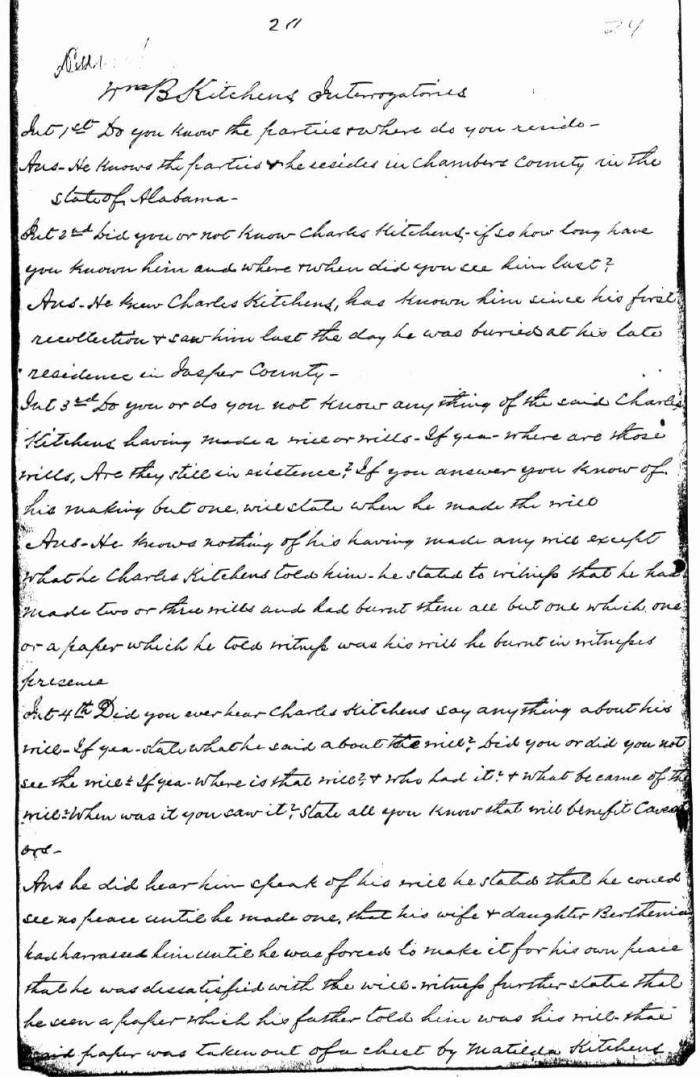 211
24
Wm B Kitchens Interrogatories
Int 1st Do you know the parties & where do you reside-
Ans- He knows the parties & he resides in Chambers County in the
state of Alabama-
Int 2nd Did you or not know Charles Kitchens,- if so how long have
you known him and where & when did you see him last?
Ans- He knew Charles Kitchens, has known him since his first
recollection & saw him last the day he was buried at his late
residence in Jasper County-
Int 3rd Do you or do you not know anything of the said Charles
Kitchens having made a will or wills- If yea- where are those
wills, Are they still in existence? If you answer you know of
his making but one, will state when he made the will
Ans- He knows nothing of his having made any will except
what he Charles Kitchens told him- he stated to witness that he had
made two or three wills and had burnt them all but one which one
or a paper which he told witness was his will he burnt in witnesses
presence
Int 4th Did you ever hear Charles Kitchens say anything about his
will- If yea- state what he said about the will? Did you or did you not
see the will? If yea- where is that will?, & who had it? & what became of the
will? When was it you saw it? State all you know that will benefit Caveat
ors-
Ans he did hear him speak of his will he stated that he could
see no peace until he made one, that his wife & daughter Berthenia
had harrassed him until he was forced to make it for his own peace
that he was dessatisfied with the will- witness further states that
he seen a paper which his father told him was his will- that
said paper was taken out of a chest by Matilda Kitchens